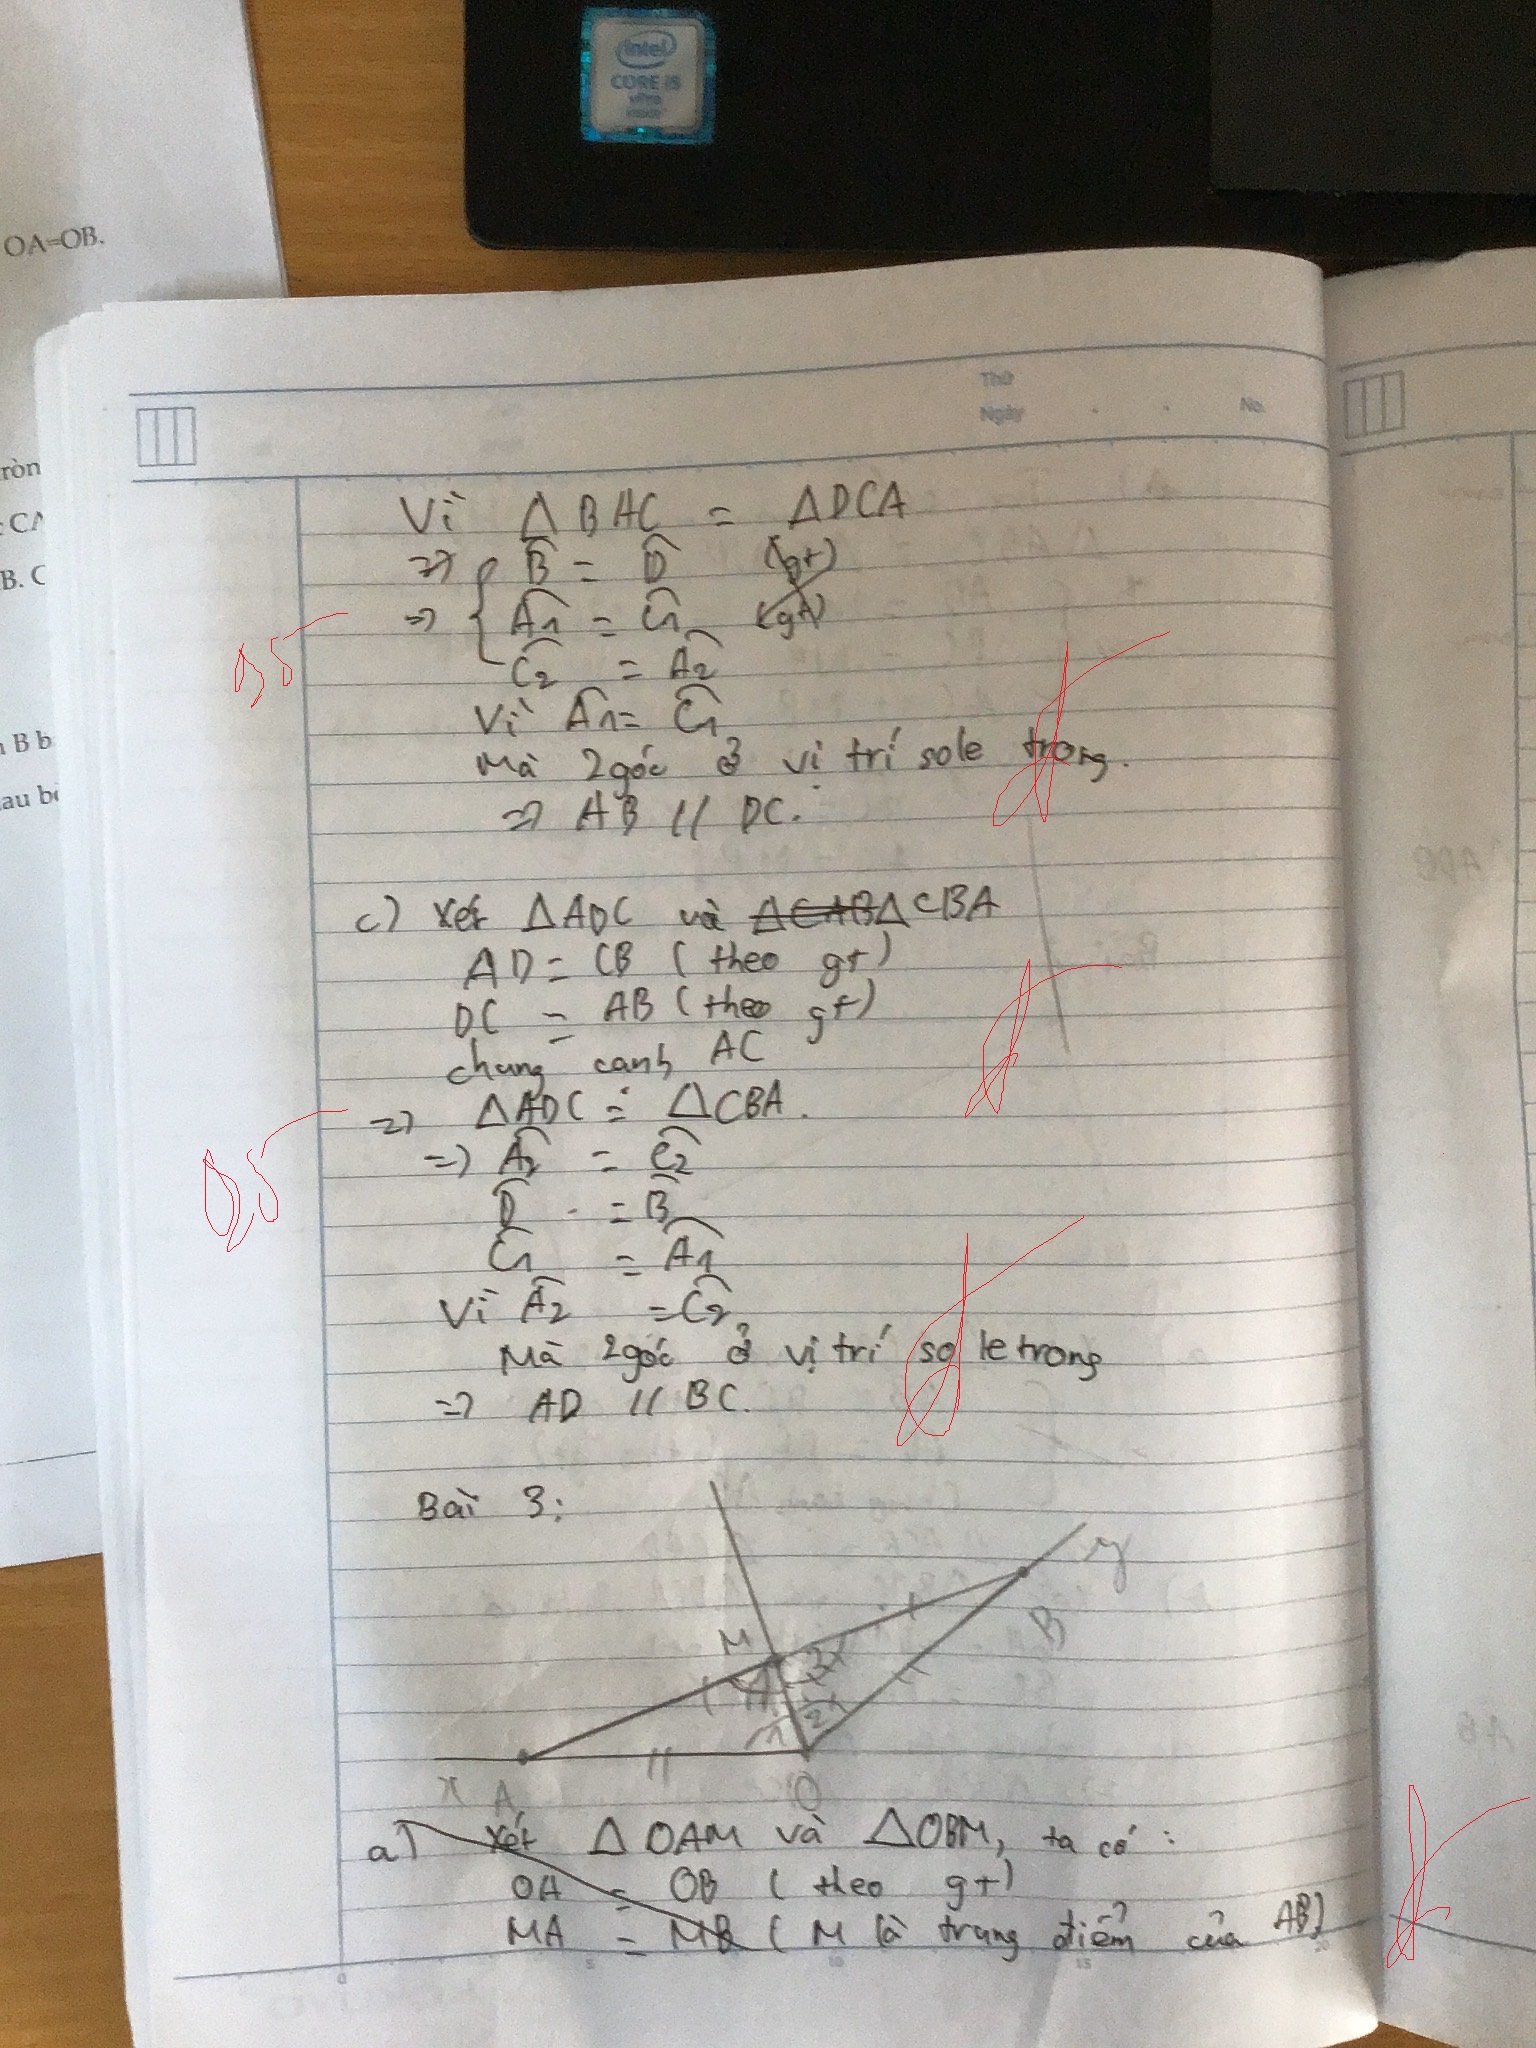 intel
CORE i5
vPro
inside
OA=OB.
ròn
CA
B. C
B b
au bở
Thứ
Ngày
No.
Vì Δ BAC = ΔDCA
=> B = D (gt)
=> A1 = C1 (gt)
C2 = A2
0,5
Vì A1 = C1
Mà 2 góc ở vị trí sole trong.
=> AB // DC.
c) Xét ΔADC và ΔCAB ΔCBA
AD = CB (theo gt)
DC = AB (theo gt)
chung cạnh AC
=> ΔADC = ΔCBA.
=> A2 = C2
0,5
D = B
C1 = A1
Vì A2 = C2
Mà 2 góc ở vị trí so le trong
=> AD // BC.
Bài 3:
y
B
M
1 2
1 2
x A O
a) Xét Δ OAM và ΔOBM, ta có :
OA = OB (theo gt)
MA = MB (M là trung điểm của AB)
0 5 10 15 20